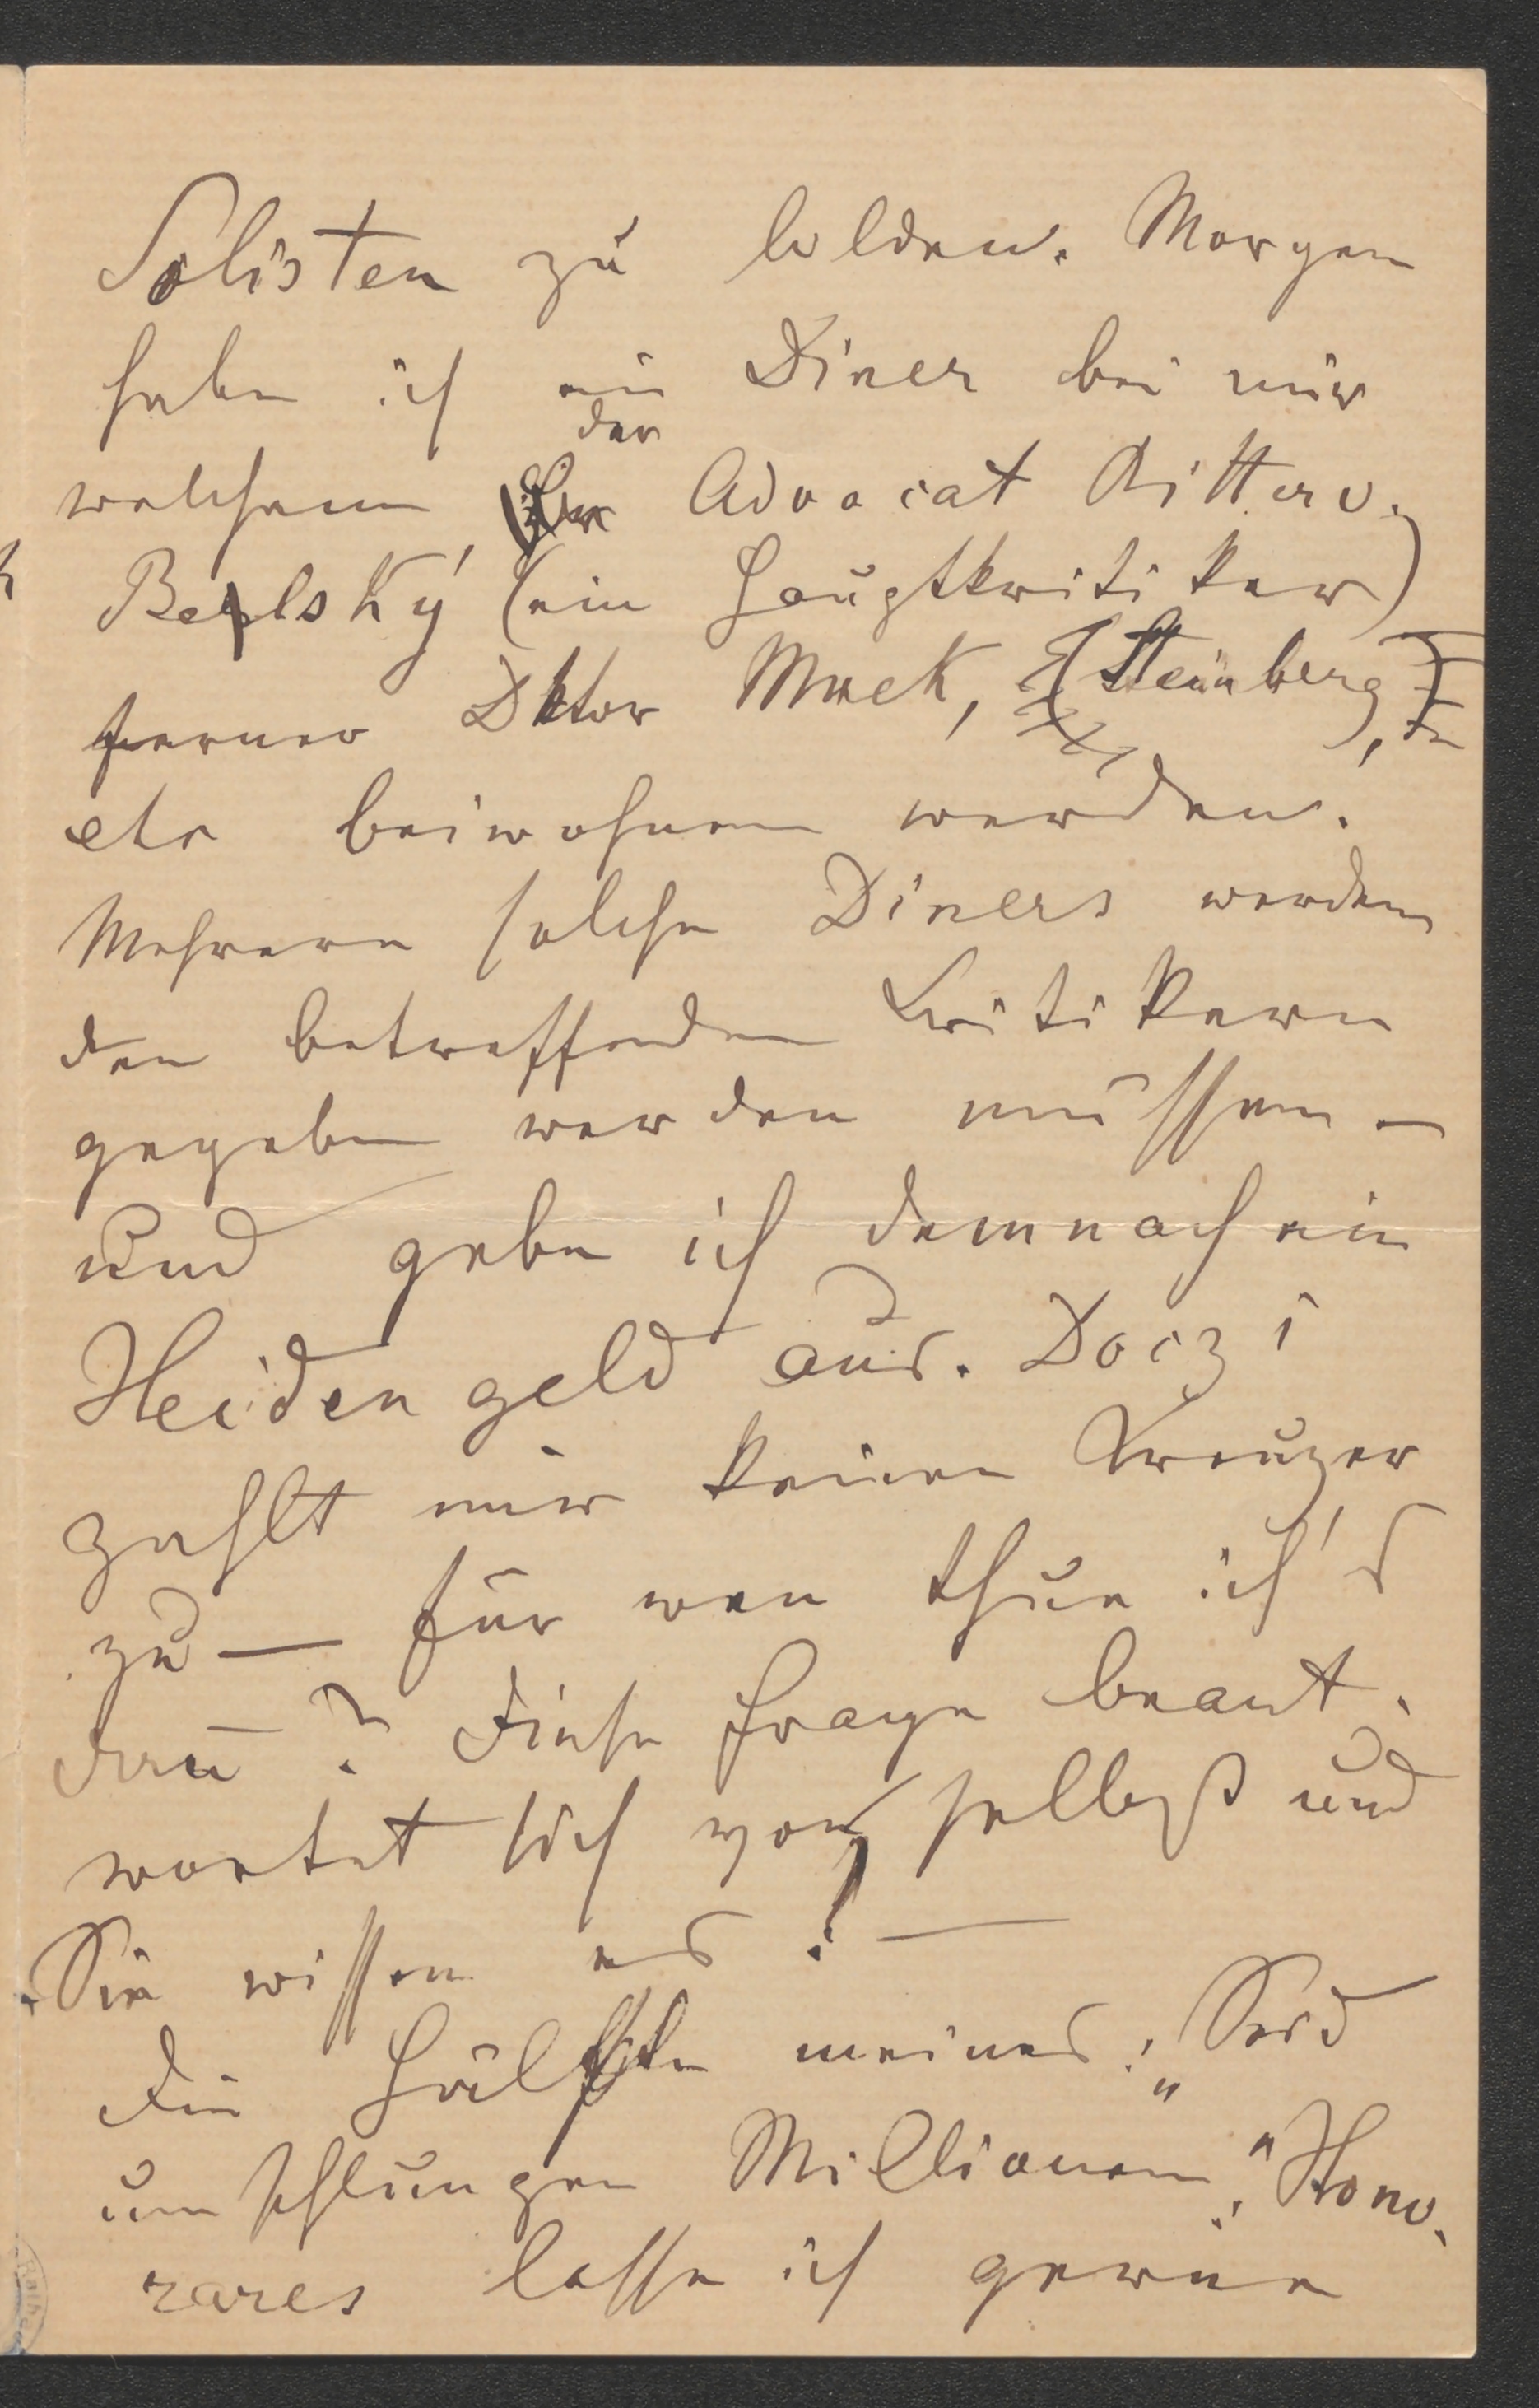 Solisten zu bilden. Morgen
habe ich ein Diner bei mir
welchem der Advocat Ritter v.
Belsky (ein Hauptkritiker)
ferner Doktor Mrek, (Steinberg),
etc beiwohnen werden.
Mehrere solche Diners werden
den betreffenden Kritikern
gegeben werden müssen –
und gebe ich demnach ein
Heidengeld aus. Doczi
zahlt mir keinen Kreuzer
zu — für wen thue ich's
denn? Diese Frage beant-
wortet sich von selbst und
Sie wissen es! —
Die Hälfte meines: „Seid
umschlungen Millionen“: Hono-
rares lasse ich gerne